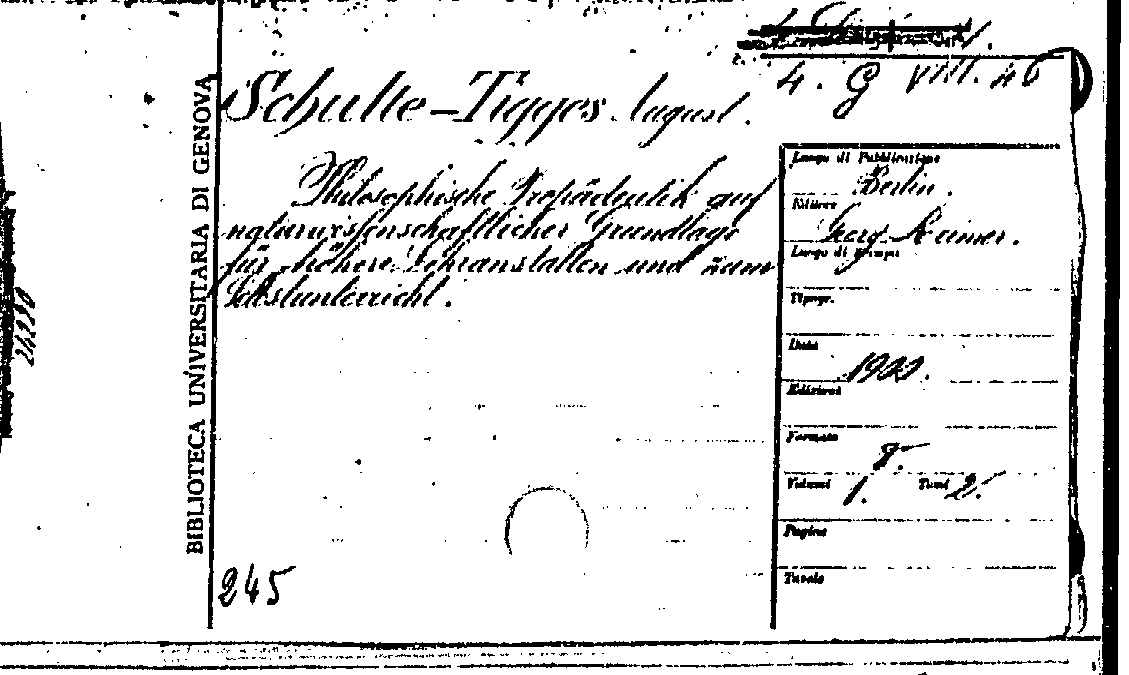 4. G VIII. 46
Schulte-Tigges August.
Philosophische Propädeutik auf
naturwissenschaftlicher Grundlage
für höhere Lehranstalten und zum
Selbstunterricht.
BIBLIOTECA UNIVERSITARIA DI GENOVA
245
Luogo di Pubblicazione
Berlin.
Editore
Georg Reimer.
Luogo di stampa
Tipogr.
Data
1900.
Edizioni
Formato
8.
Volumi 1. Tomi 2.
Pagine
Tavole